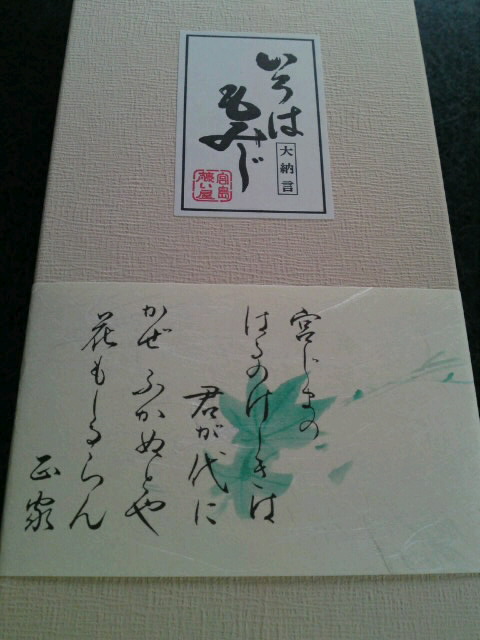 いろは
もみじ
大納言
宮島
藤い屋
宮じまの
はるのけしきは
君が代に
かぜふかぬとや
花もしるらん
正家